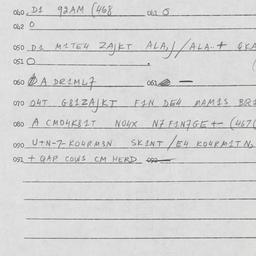 040 D1 92AM (468 041 0
042 0
050 D1 M1TE4 ZAJKT ALAJ/ALA..t
051 0
060 A DR1ML7 061 —
070 04T G81ZAJKT F1N DE4 MAM1S
080 A CMO4K81T NO4X N7F1N7GE+ (467(
090 U+N-7-KO4RM3N SK1NT/E4 KO4RM1TN
091 + QAP COW1 CM HERD 092 —